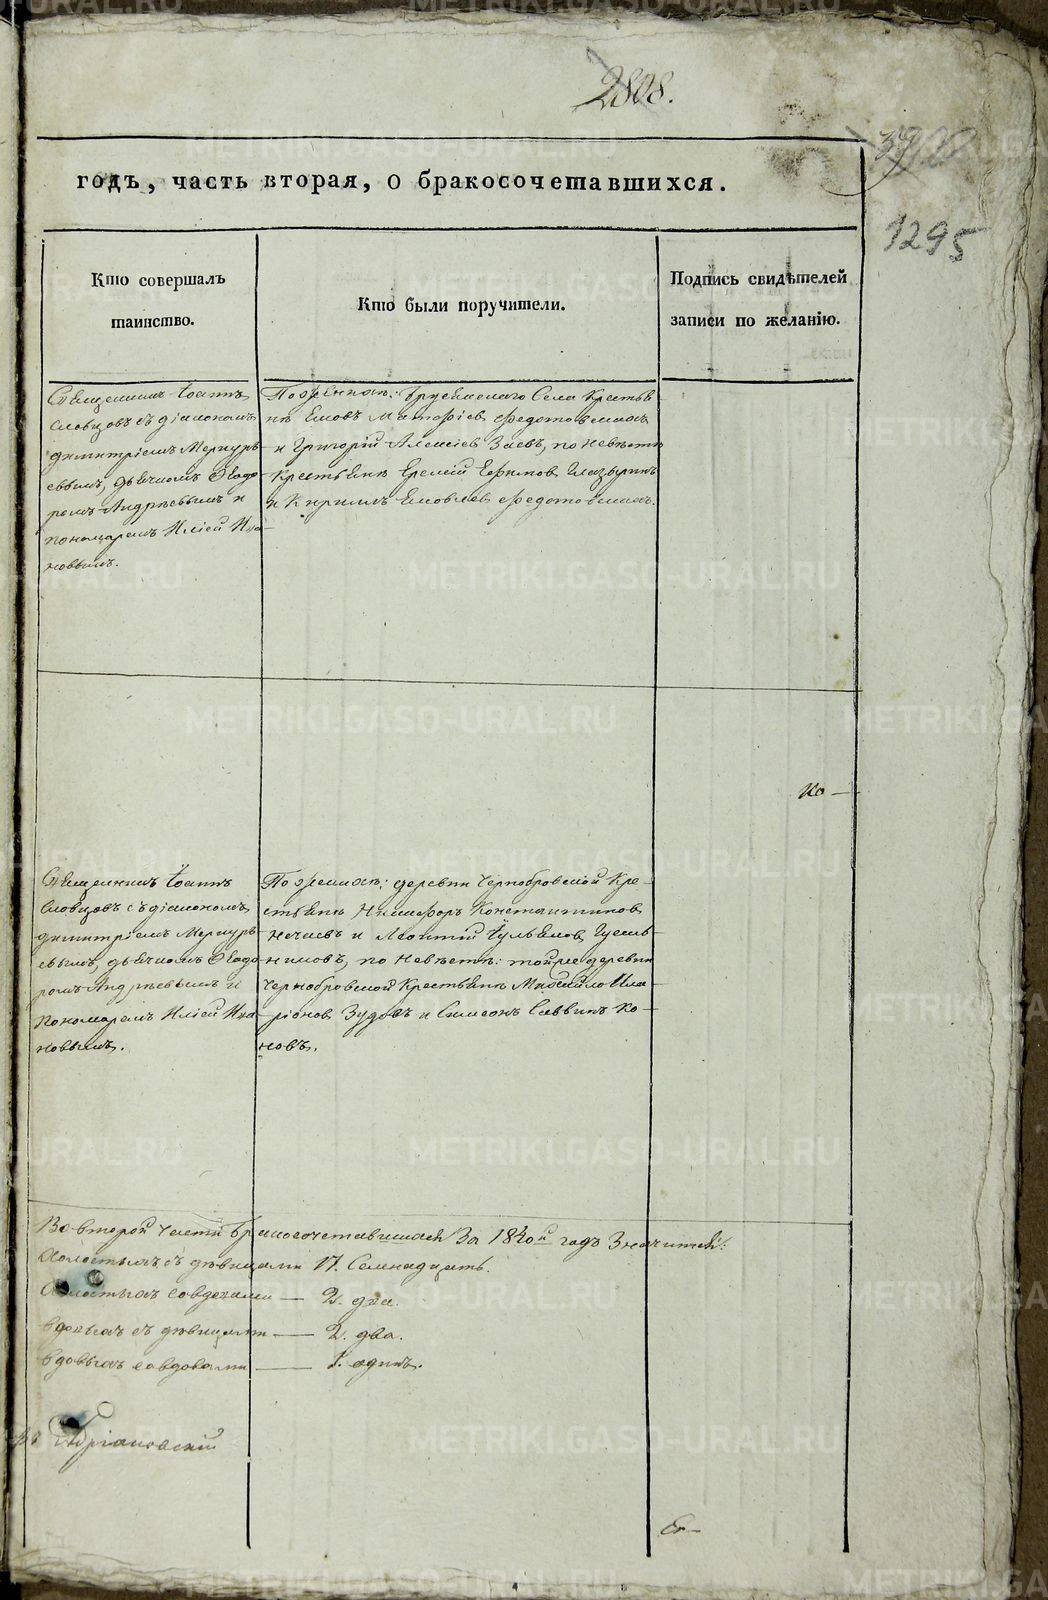 2808.
3900
1295
годъ, часть вторая, о бракосочетавшихся.
Кто совершалъ
таинство.
Кто были поручители.
Подпись свидѣтелей
записи по желанію.
Священникъ Іоаннъ
Словцовъ съ діакономъ
димитріемъ Меркурь
евымъ, дьячкомъ Ѳеодо
ромъ Андреевымъ и
пономаремъ Иліей Ива
новымъ.
По женихѣ: Села Крестья
нѣ Матфіев
и Григорій Алексіев Заевъ, по невѣстѣ
крестьяне Еремій Ефимов Глазуринъ
и Кирилъ Яковлев
Ко —
Священникъ Іоаннъ
Словцовъ съ діакономъ
димитріемъ Меркурь
евымъ, дьячкомъ Ѳеодо
ромъ Андреевымъ и
Пономаремъ Иліей Ива
новымъ.
По женихѣ: деревни Чернобровской Кре-
стьяне Никифоръ Константинов
Нечаевъ и Леонтій Гусель-
никовъ, по невѣстѣ: тойже деревни
Чернобровской крестьяне Михайло Ила-
ріонов Зудовъ и Симеонъ Саввинъ Ко-
новъ.
Во второй части бракосочетавшихся За 1840й годъ Значится:
Холостыхъ съ дѣвицами 17. Семнадцать.
Холостыхъ со вдовами — 2. два.
вдовыхъ съ дѣвицами — 2. два.
вдовыхъ со вдовами — 1. одинъ.
Адріановскій
METRIKI.GASO-URAL.RU